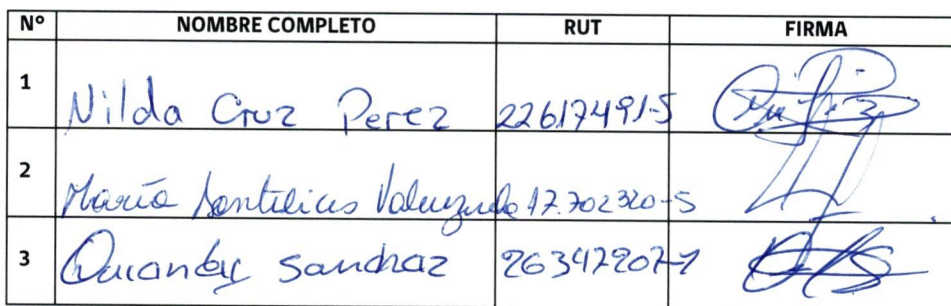 N° NOMBRE COMPLETO RUT FIRMA
1 Nilda Cruz Perez 22617491-5
2 María Santelices Valenzuela 17.702320-5
3 sanchaz 263479207-1